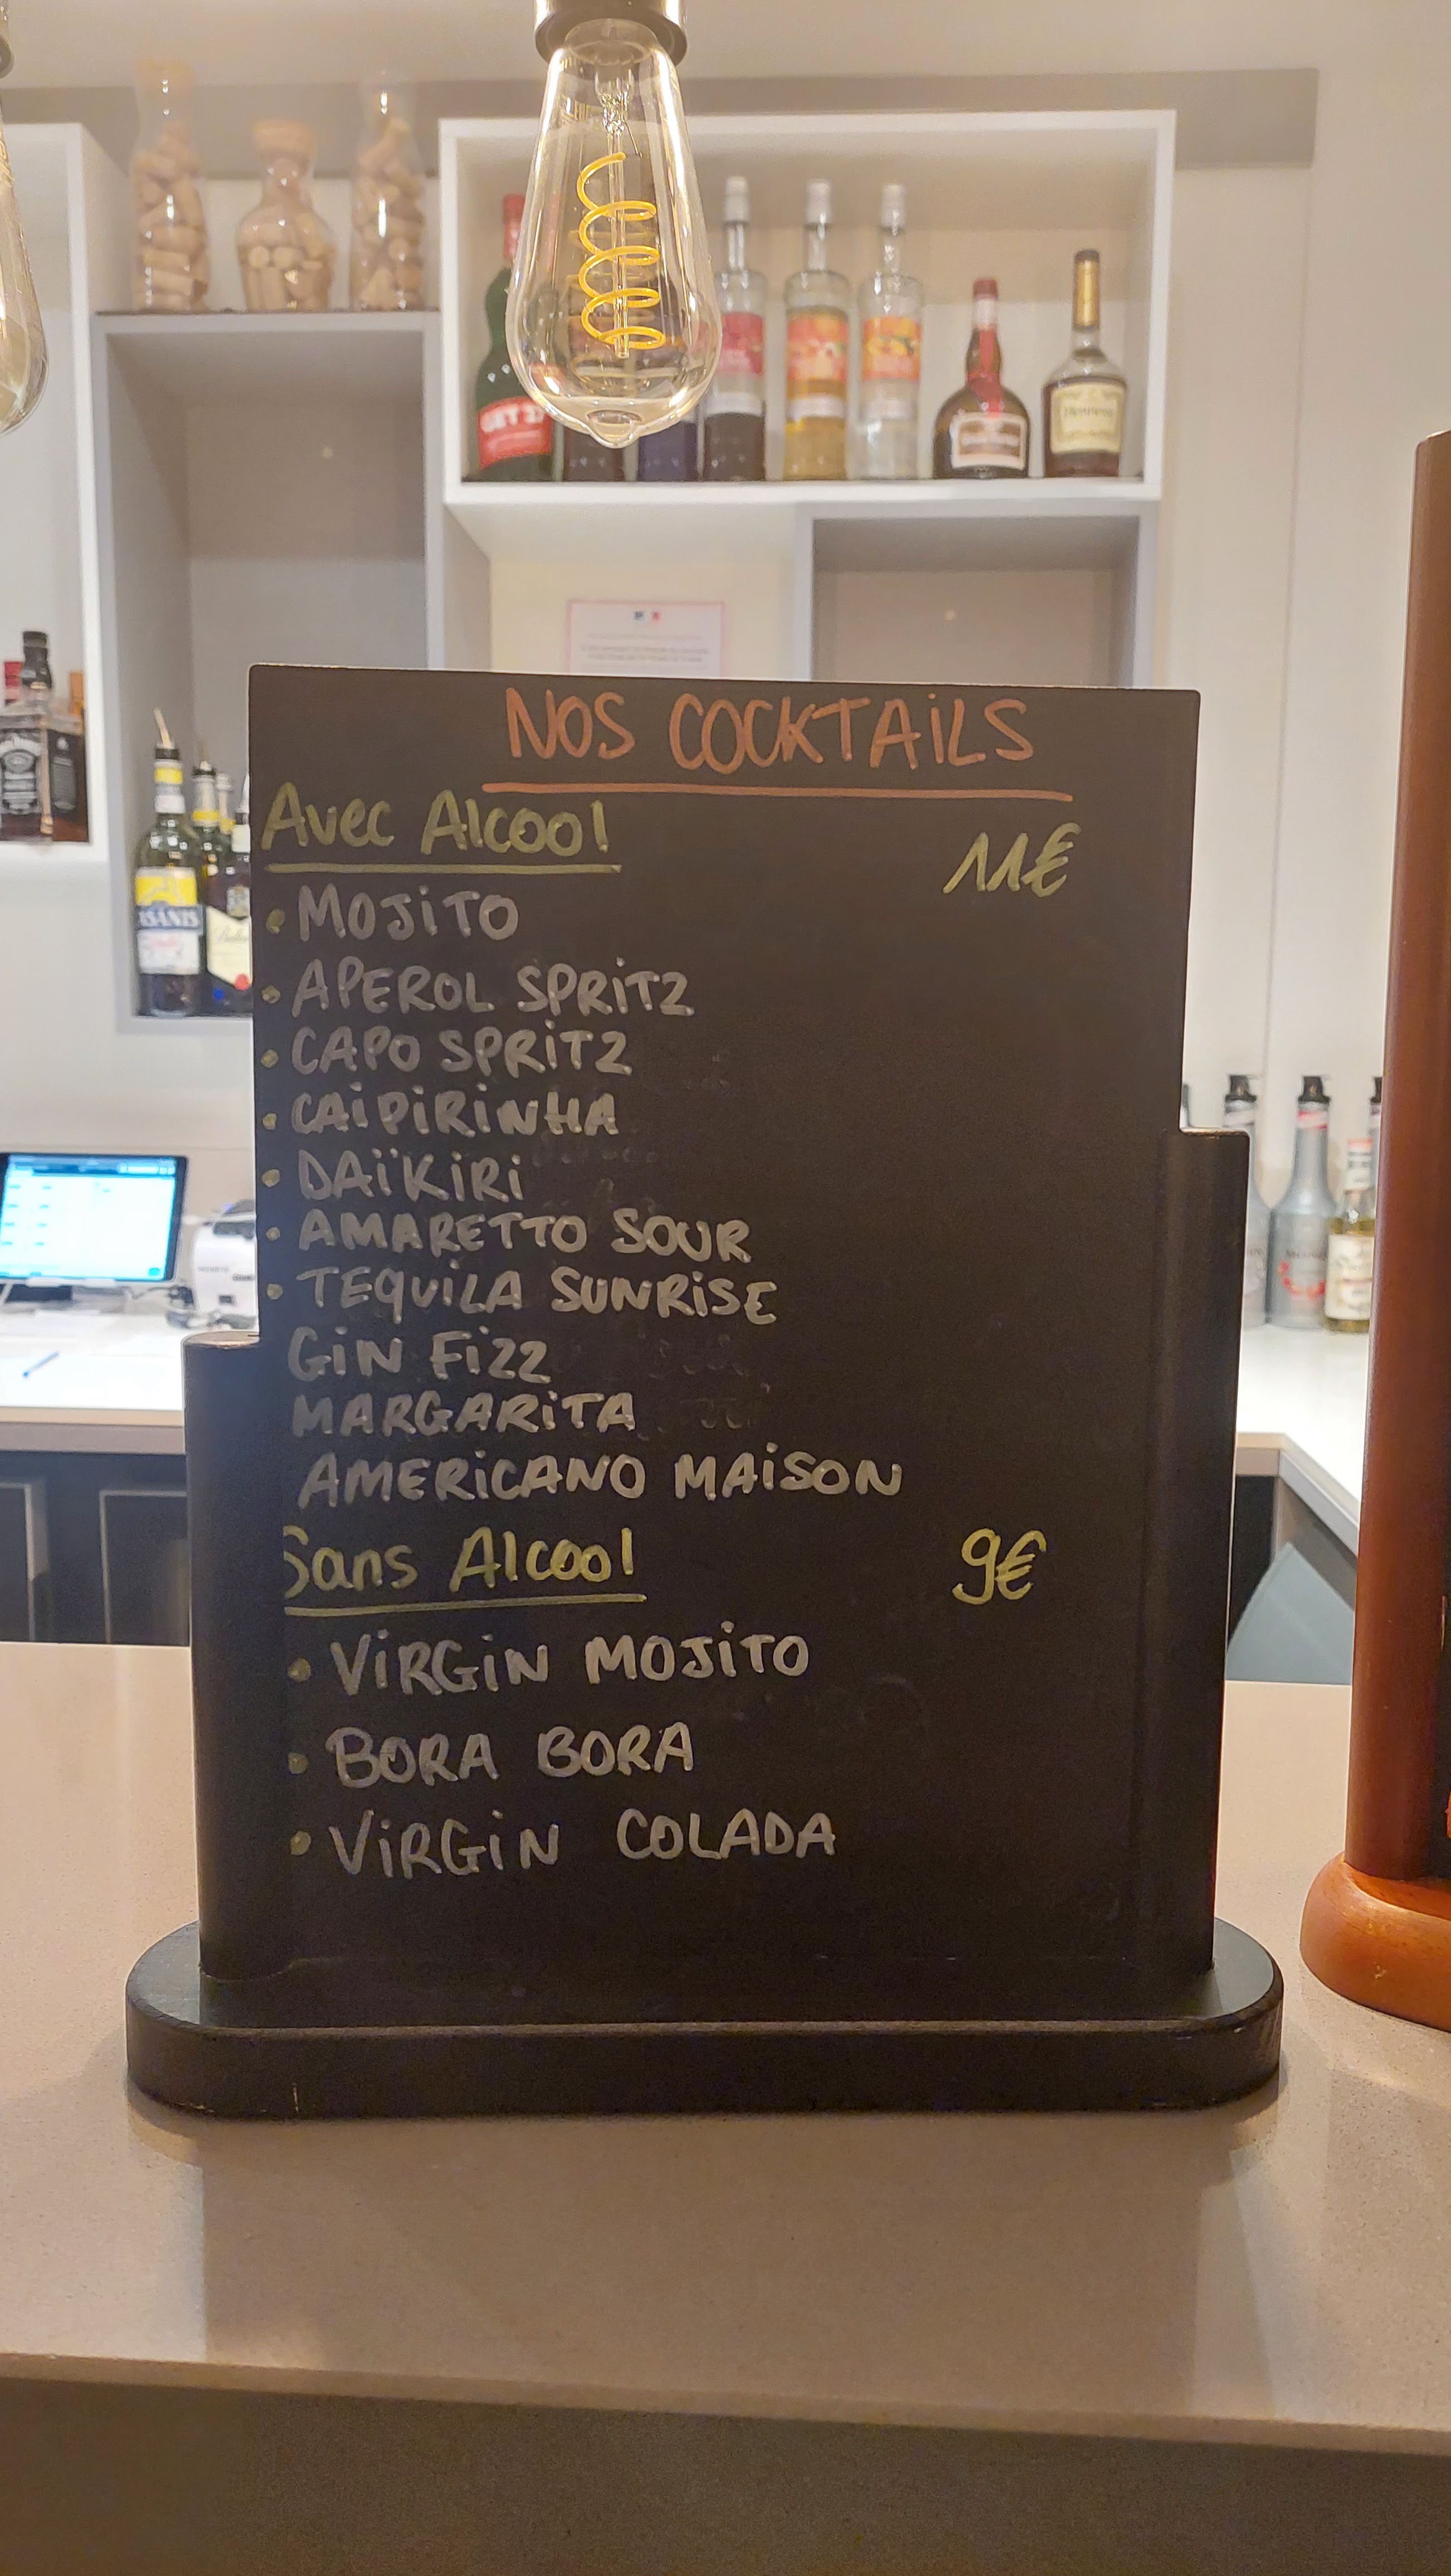 NOS COCKTAILS
Avec Alcool 11€
• MOJITO
• APEROL SPRITZ
• CAPO SPRITZ
• CAIPIRINHA
• DAÏKIRI
• AMARETTO SOUR
• TEQUILA SUNRISE
GIN FIZZ
MARGARITA
AMERICANO MAISON
Sans Alcool 9€
• VIRGIN MOJITO
• BORA BORA
• VIRGIN COLADA
GET 27
Hennessy